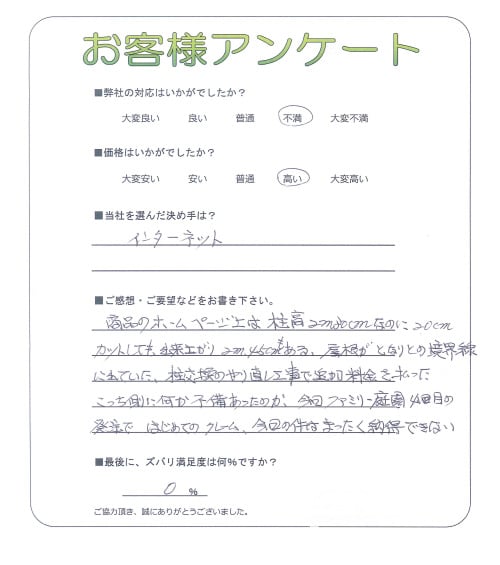 お客様アンケート
■弊社の対応はいかがでしたか？
大変良い 良い 普通 不満 大変不満
■価格はいかがでしたか？
大変安い 安い 普通 高い 大変高い
■当社を選んだ決め手は？
インターネット
■ご感想・ご要望などをお書き下さい。
商品のホームページ上は 柱高 2m30cmなのに 20cm
カットしても、出来上がり 2m45cmもある、屋根がとなりとの境界線
に出ていた、柱交換のやり直し工事で追加料金を払った
こっち側に何か不備あったのか、今回ファミリー庭園4回目の
発注で はじめてのクレーム、今回の件はまったく納得できない
■最後に、ズバリ満足度は何％ですか？
0 ％
ご協力頂き、誠にありがとうございました。